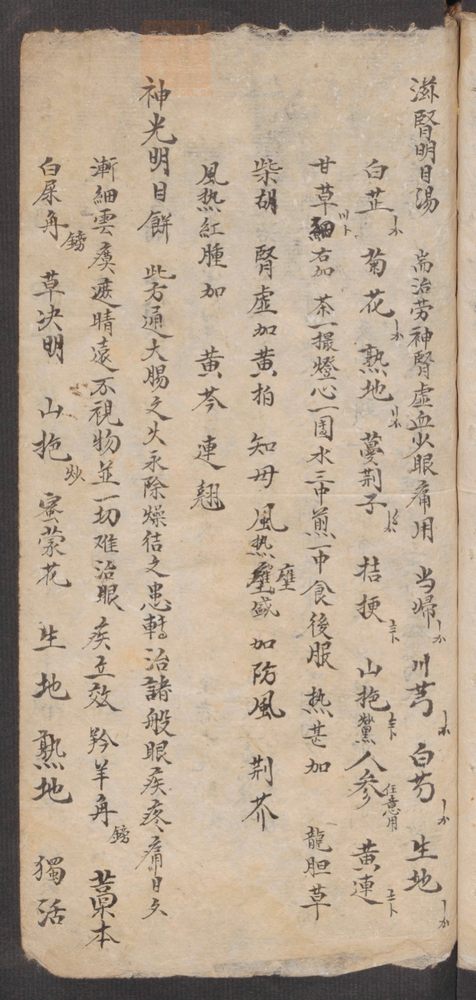 滋腎明目湯 耑治劳神腎虚血少眼痛用 当歸 川芎 白芍 生地
白芷 菊花 熟地 蔓荆子 桔梗 山梔 人参任意用 黄連
甘草 細 右加 茶一撮燈心一團水三中煎一中食後服 热甚加 龍胆草
柴胡 腎虚加黄柏 知母 風热壅盛 加防風 荆芥
風热紅腫加 黄芩 連翹
神光明目餅 此方通大腸之火永除燥结之患轉治諸般眼疾疼痛日久
漸細雲瘼遮睛遠不視物並一切难治眼疾立效 羚羊角鎊 藁本
白犀角鎊 草决明 山梔炒 蜜蒙花 生地 熟地 獨活